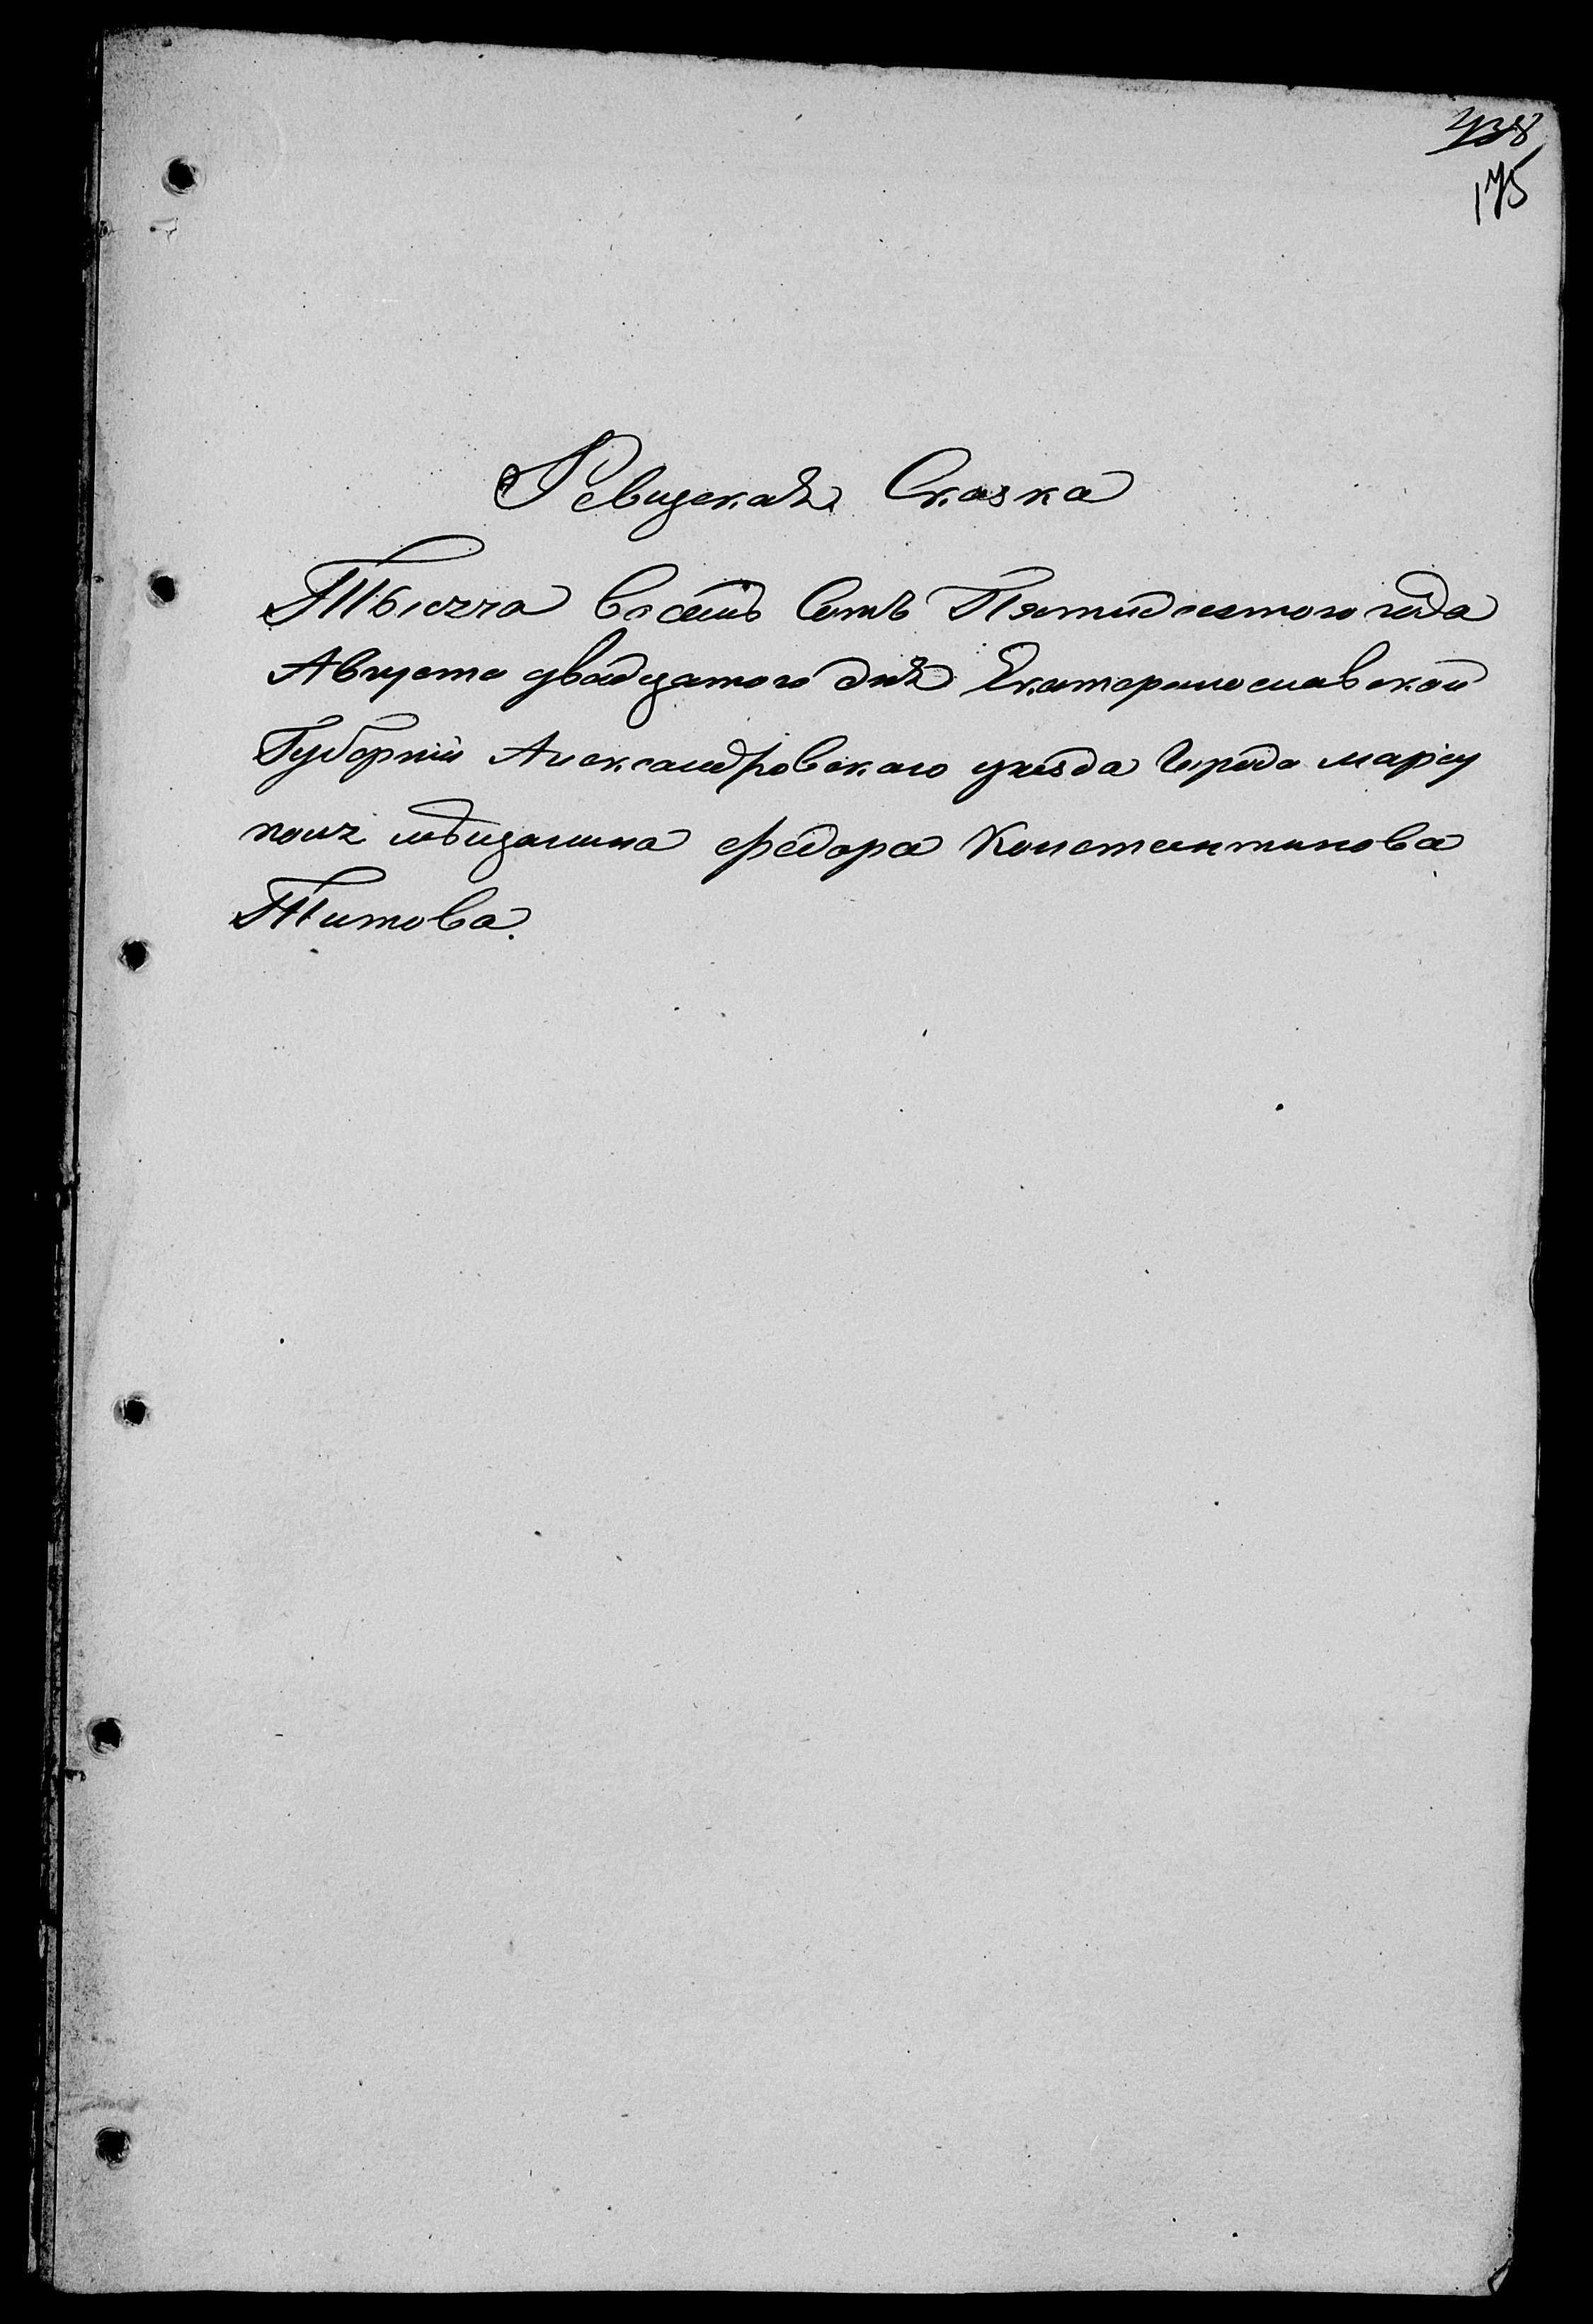 438
175
Ревизская Сказка
Тысяча восемь Сотъ Пятидесятого года
Августа двадцатого дня Екатеринославской
Губернии Александровского уезда Города мариу
поля мещанина федора Константинова
Титова.